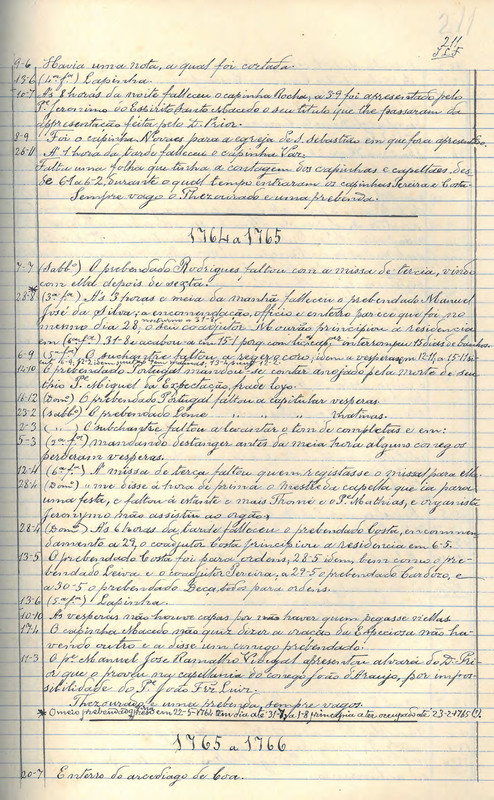 211
211
9-6 Havia uma nota, a qual foi cortada.
13-6 (4ª fª) Lapinha.
10-7 Ás 8 horas da noite falleceu o capinha Rocha; a 3-9 foi apresentado pelo
Pe. Jeronimo do Espirito Santo Macedo o seu titulo que lhe passaram da
apresentação feita pelo D. Prior.
8-9 Foi o capinha Novaes para a egreja de S. Sebastião em que fora apresentado.
26-11 Á 1 hora da tarde falleceu o capinha Vaz.
Falta uma folha que tinha a contagem dos capinhas e capellães, des-
de 6-1 a 6-2, durante o qual tempo entraram os capinhas Pereira e Costa.
Sempre vago o Thezourado e uma prebenda.
1764 a 1765
7-7 (Sabbº) O prebendado Rodrigues faltou com a missa de tercia, vindo
com ella depois de sexta.
28-8 (3ª fª) Ás 3 horas e meia da manhã falleceu o prebendado Manuel
José da Silva; a encomendação, officio e enterro parece que foi no
mesmo dia 28; o seu coadjutor Mourão principiou a residencia
em (6ª fª) 31-8 e acabou-a em 15-1 interrompeu 15 dias de banhos.
6-9 (5ª fª) O suchantre faltou a reger o coro; idem a vesperas em
14-10 O prebendado Portugal mandou-se contar anojado pela morte de seu
thio Pe. Miguel da Expectação, frade loyo.
16-12 (Domº) O prebendado Portugal faltou a capitular vesperas.
23-2 (Sabbº) O prebendado Leme " " " Matinas.
2-3 ( " ) O subchantre faltou a levantar o tom de completas e em:
5-3 (3ª fª) mandando destanger antes da meia hora alguns conegos
perderam vesperas.
12-4 (6ª fª) Á missa de terça faltou quem registasse o missal para ella.
28-4 (Domº) " me disse á hora de prima o mestre de capella que ia para
uma festa, e faltou á estante e mais Thomé e o Pe. Mathias, e organista
Jeronymo não assistiu ao orgão.
28-4 (Domº) Ás 6 horas da tarde falleceu o prebendado Costa, encommen-
damento a 29, o coadjutor Costa principiou a residencia em 6-5.
13-5 O prebendado Costa foi para ordens, 28-5 idem, bem como o pre-
bendado Leiva e o coadjutor Pereira, a 29-5 o prebendado Cardozo, e
a 30-5 o prebendado Beça, todos para ordens.
13-6 (5ª fª) Lapinha.
10-10 As vesperas não houve capas por não haver quem pegasse n'ellas.
17-4 O capinha Macedo não quiz dizer a oração da Especiosa não ha-
vendo outro e a disse um conego prebendado.
11-3 O pe. Manuel José Ramalho Vidigal apresentou alvará do D. Pri-
or que o provou na capellania do conego João d'Araujo, por impos-
sibilidade do Pe. João Frz. Luiz.
Thezourado e uma prebenda, sempre vagos.
* O meio prebendado em 22-5-1764 tem dia até 31-7, e a 1-8 principia a ter occupado até 23-2-1765 (?).
1765 a 1766
20-7 Enterro do arcediago de Coa.